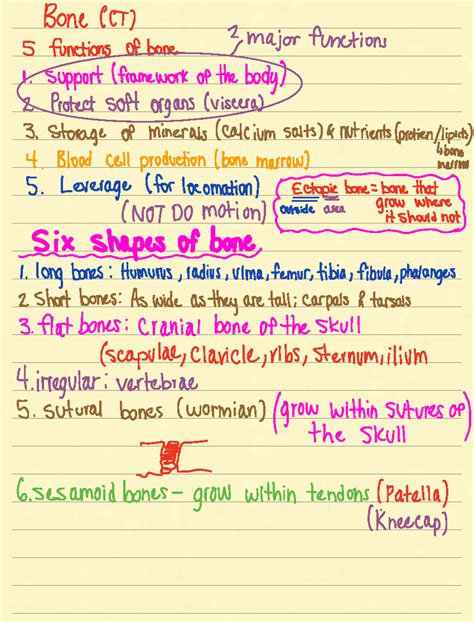 Bone (CT)
5 functions of bone
2 major functions
1. Support (framework of the body)
2. Protect soft organs (viscera)
3. Storage of minerals (calcium salts) & nutrients (protien/lipids)
↳ bone marrow
4. Blood cell production (bone marrow)
5. Leverage (for locomation)
(NOT DO motion)
Ectopic bone = bone that
outside area grow where
it should not
Six shapes of bone
1. long bones: Humurus, radius, ulma, femur, tibia, fibula, phalanges
2 Short bones: As wide as they are tall; carpals & tarsals
3. flat bones: Cranial bone of the skull
(scapulae, Clavicle, ribs, Sternum, ilium
4. irregular: vertebrae
5. Sutural bones (wormian) (grow within sutures of
the Skull
6. sesamoid bones - grow within tendons (Patella)
(Kneecap)